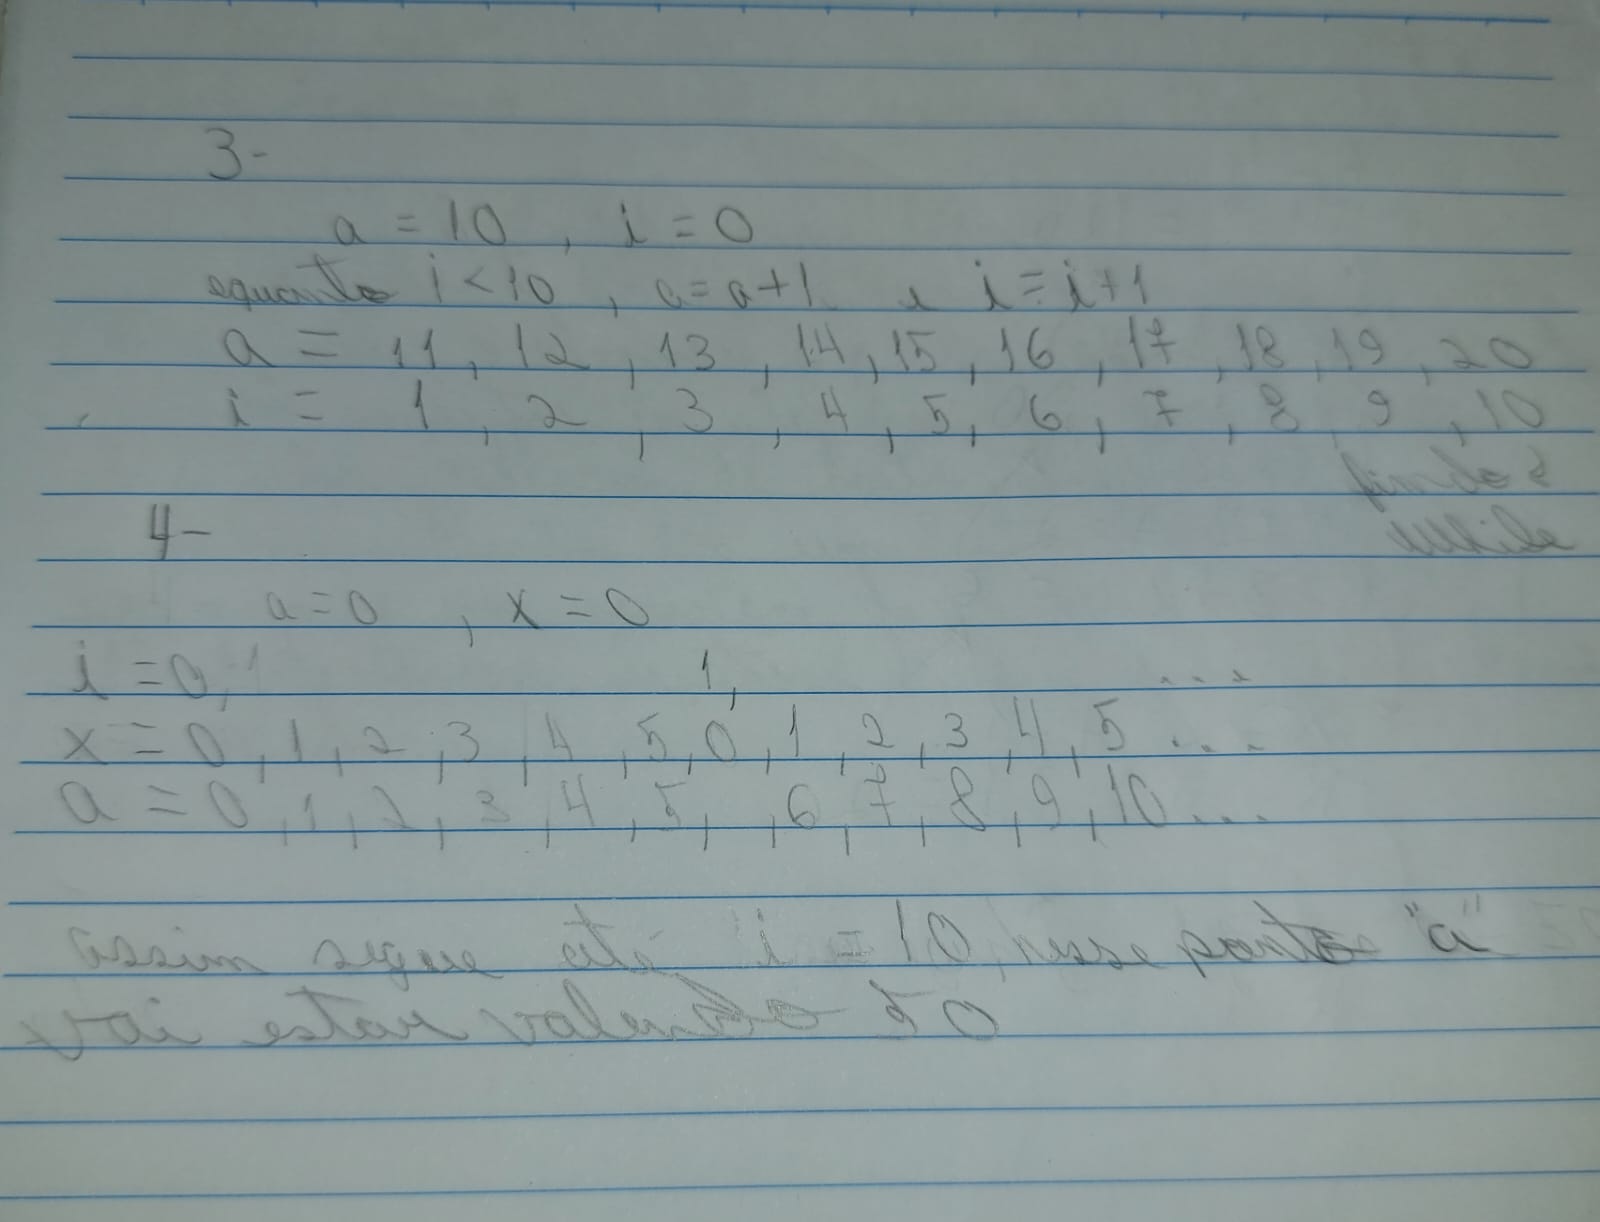 3-
a = 10 , i = 0
equanto i < 10 , a = a + 1 e i = i + 1
a = 11 , 12 , 13 , 14 , 15 , 16 , 17 , 18 , 19 , 20
i = 1 , 2 , 3 , 4 , 5 , 6 , 7 , 8 , 9 , 10
while
4-
a = 0 , x = 0
i = 0, 1 1, ...
x = 0 , 1 , 2 , 3 , 4 , 5 , 0 , 1 , 2 , 3 , 4 , 5 ...
a = 0 , 1 , 2 , 3 , 4 , 5 , , 6 , 7 , 8 , 9 , 10 ...
assim segue até i = 10, nesse ponto "a"
vai estar valendo 50